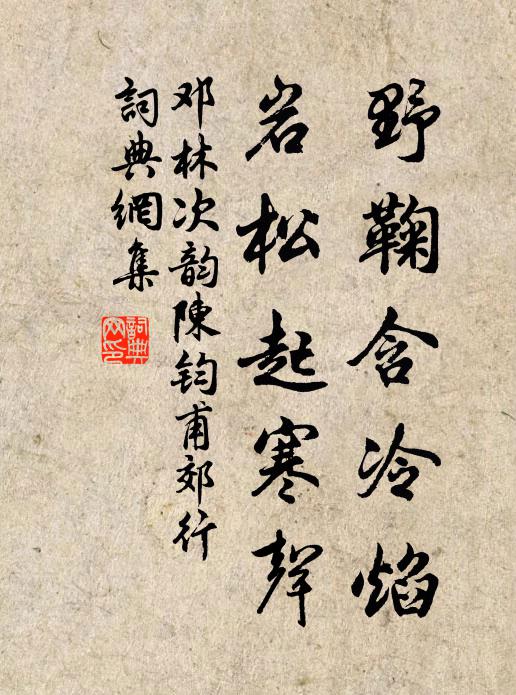 野鞠含冷焰
岩松起寒聲
邓林次韵陳鈞甫郊行
詞典網集
詞典网印